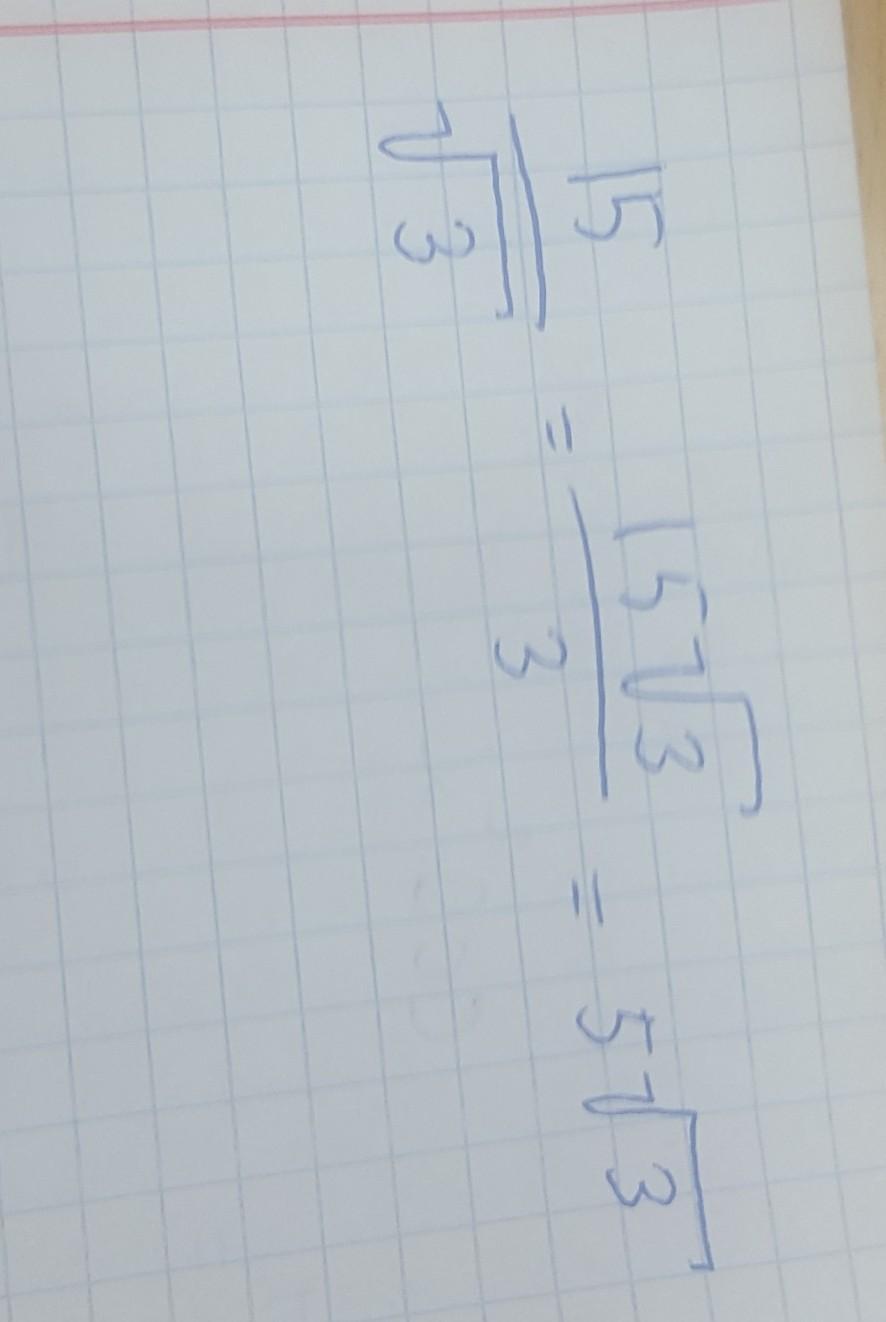 15/√3 = 15√3/3 = 5√3